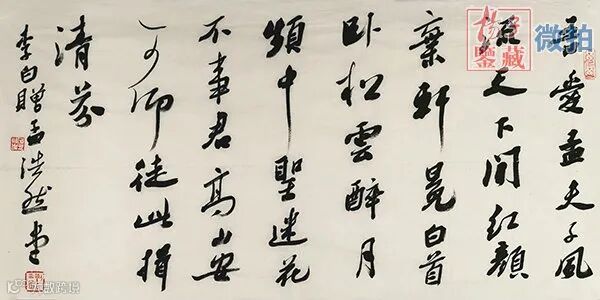 吾愛孟夫子風
流天下聞紅顏
棄軒冕白首
卧松雲醉月
頻中聖迷花
不事君高山安
可仰徒此揖
清芬
李白贈孟浩然
鉴藏
微拍
大数跨境